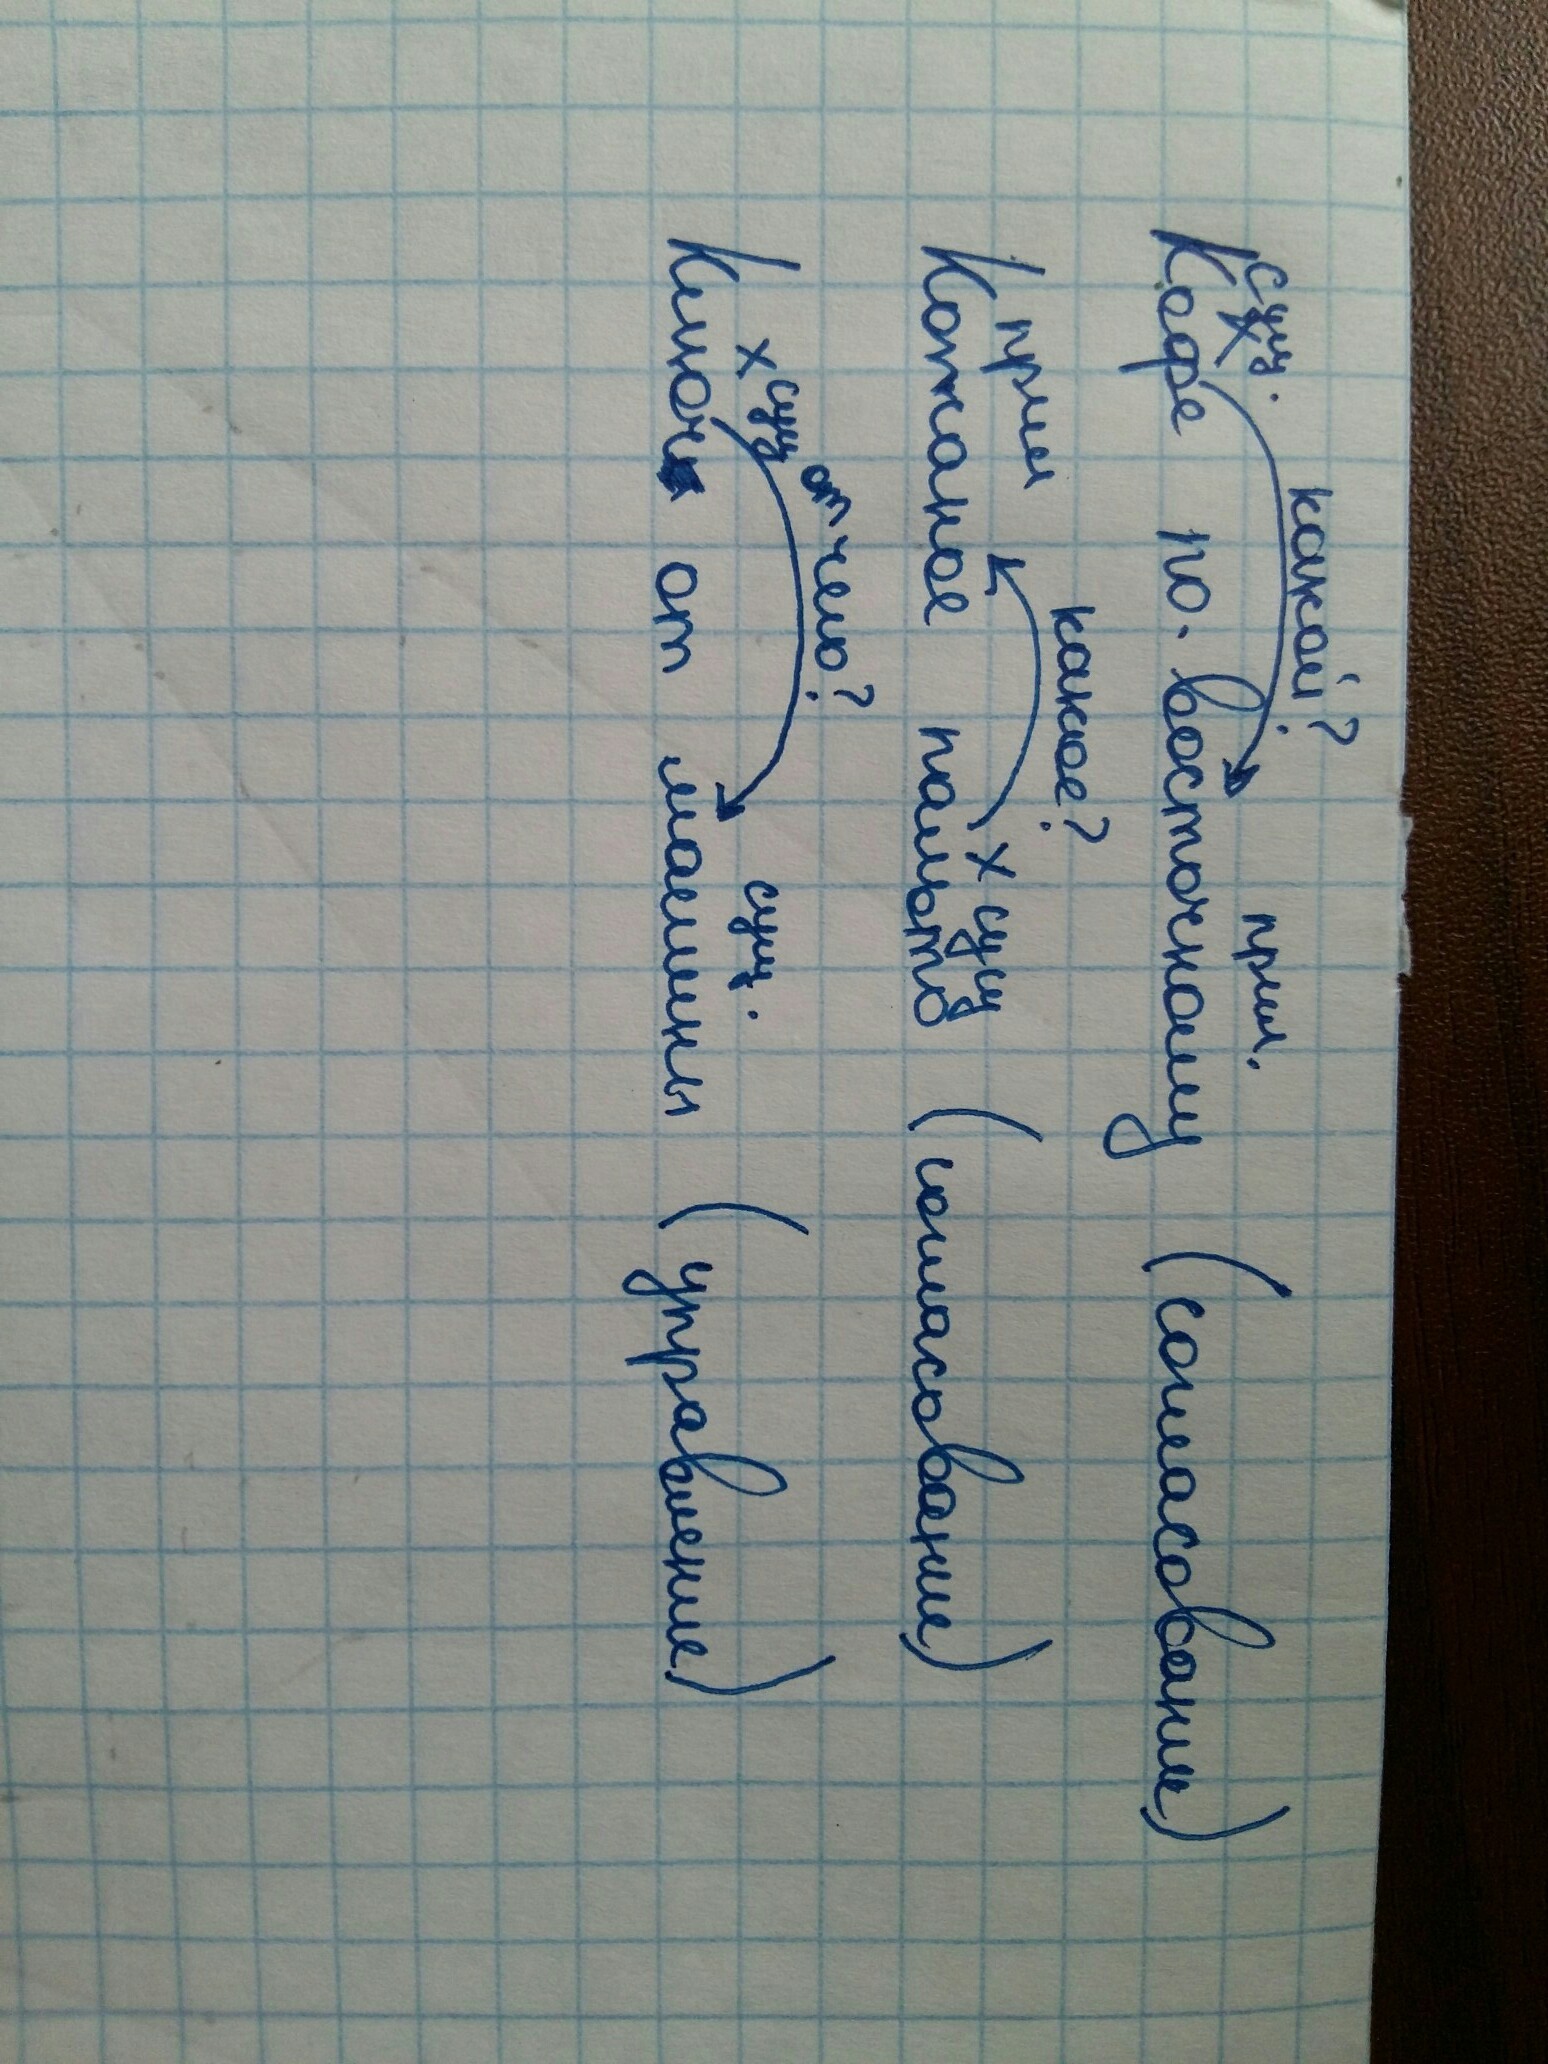 какой?
сущ. прил.
Кофе по-восточному (согласование)
какое?
прил х сущ
Кожаное пальто (согласование)
от чего?
х сущ сущ.
Ключ от машины (управление)